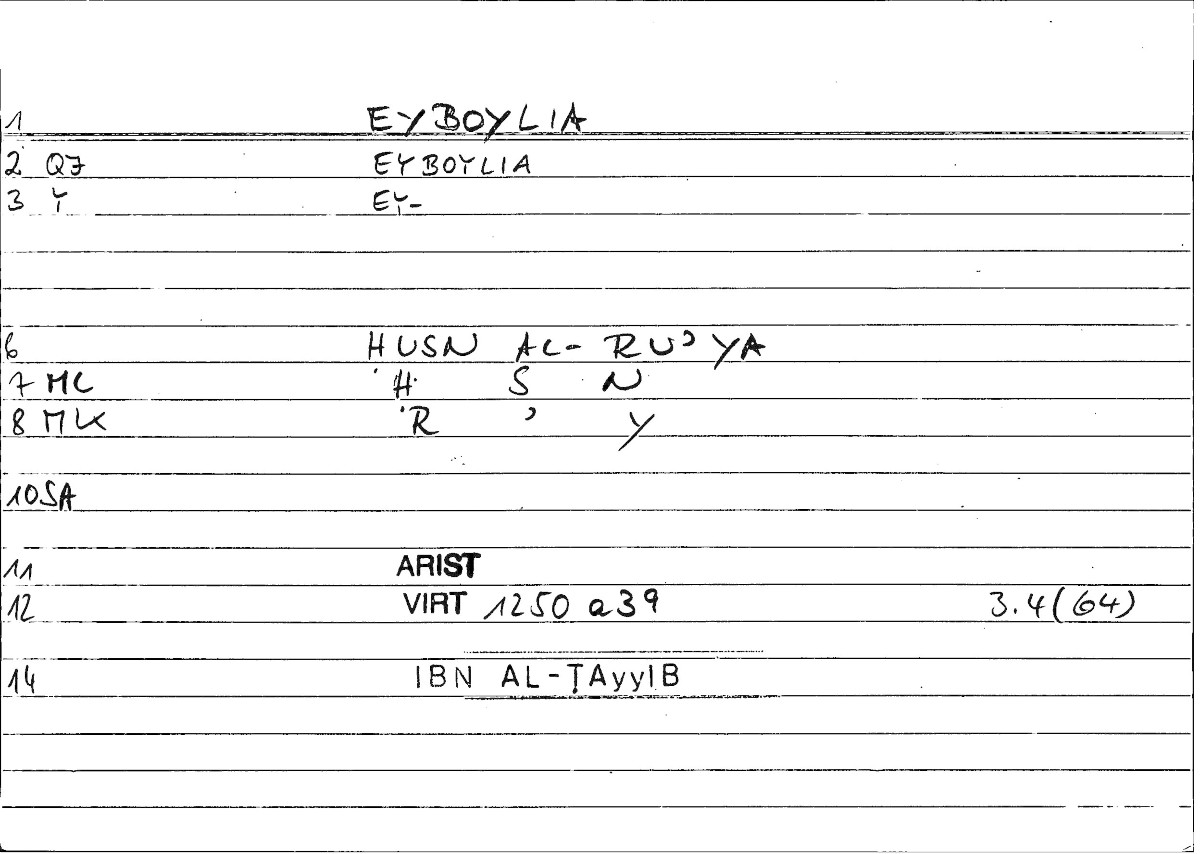 1 EYBOYLIA
2 Q7 EYBOYLIA
3 Y EY-
6 HUSN AL-RUʾYA
7 MC Ḥ S N
8 MK R ʾ Y
10 SA
11 ARIST
12 VIRT 1250 a 39 3.4(64)
14 IBN AL-ṬAyyIB